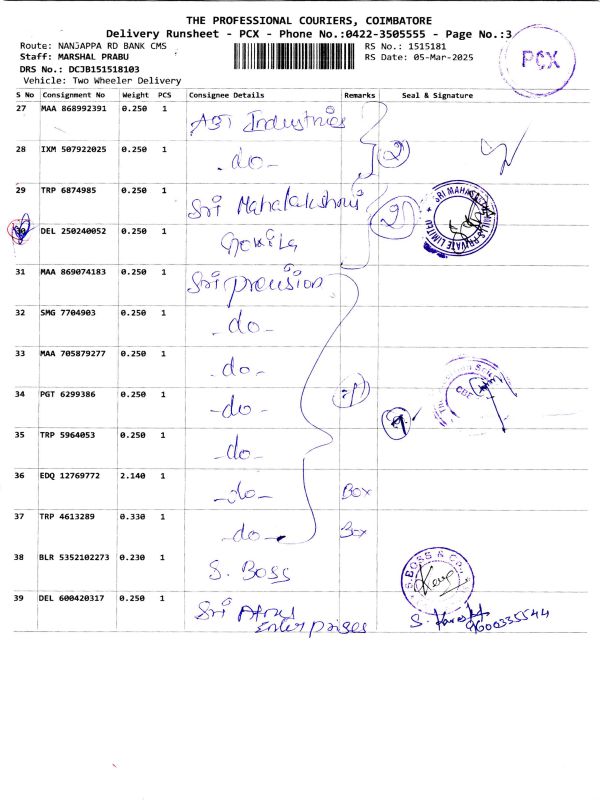 THE PROFESSIONAL COURIERS, COIMBATORE
Delivery Runsheet - PCX - Phone No.:0422-3505555 - Page No.:3
Route: NANJAPPA RD BANK CMS
RS No.: 1515181
Staff: MARSHAL PRABU
RS Date: 05-Mar-2025
PCX
DRS No.: DCJB151518103
Vehicle: Two Wheeler Delivery
S No Consignment No Weight PCS Consignee Details Remarks Seal & Signature
27 MAA 868992391 0.250 1 Industries
28 IXM 507922025 0.250 1 -do- 2
29 TRP 6874985 0.250 1 Sri Mahalakshmi 2
30 DEL 250240052 0.250 1
SRI MAHA MILLS PRIVATE LIMITED
31 MAA 869074183 0.250 1 Sri precision
32 SMG 7704903 0.250 1 -do-
33 MAA 705879277 0.250 1 -do-
34 PGT 6299386 0.250 1 -do-
CBE
35 TRP 5964053 0.250 1 -do-
36 EDQ 12769772 2.140 1 -do- Box
37 TRP 4613289 0.330 1 -do- Box
38 BLR 5352102273 0.230 1 S. Boss
S. BOSS & CO.
39 DEL 600420317 0.250 1 Sri
Enterprises
9600335544